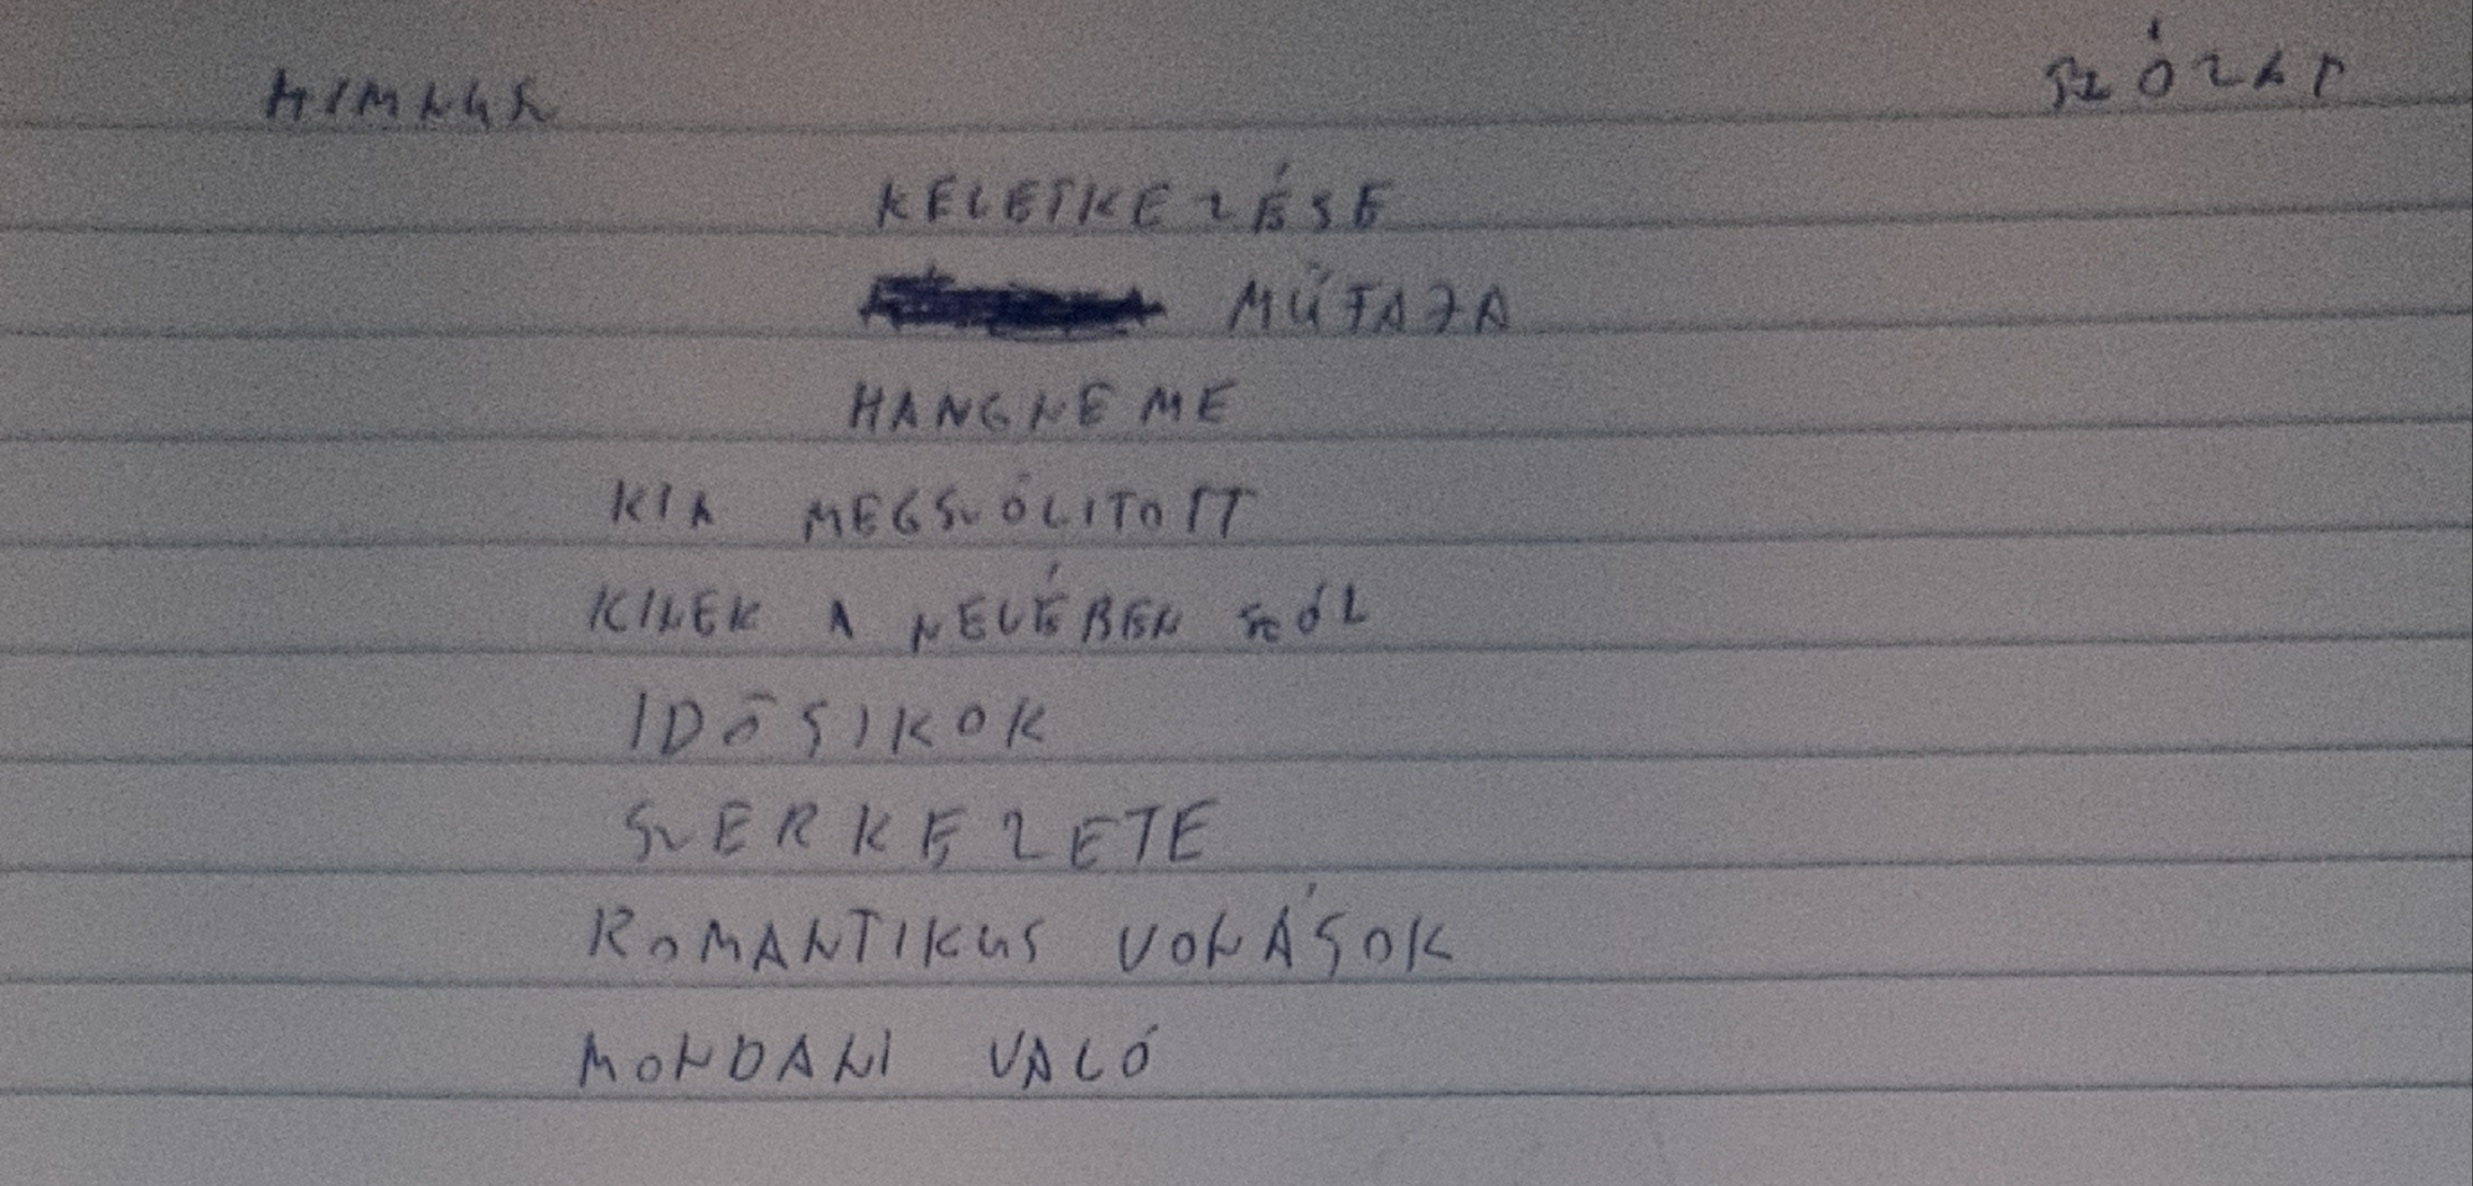 HIMNUSZ SZÓZAT
KELETKEZÉSE
MŰFAJA
HANGNEME
KI A MEGSZÓLITOTT
KINEK A NEVÉBEN SZÓL
IDŐSIKOK
SZERKEZETE
ROMANTIKUS VONÁSOK
MONDANI VALÓ